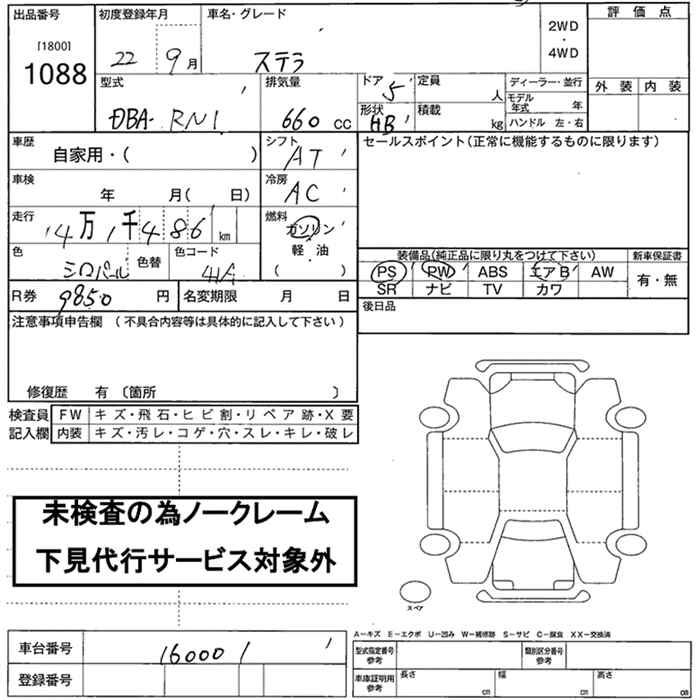 出品番号 初度登録年月 車名・グレード 評価点
[1800] 2WD
1088 22 9月 ステラ ・
4WD
型式 排気量 ドア 5 定員 人 ディーラー・並行 外装 内装
モデル年式 年
DBA- RN1 660 CC 形状 HB 積載 kg ハンドル 左・右
車歴 シフト セールスポイント(正常に機能するものに限ります)
自家用・( ) AT
車検 冷房
年 月( 日) AC
走行 燃料
4万1千486km ガソリン
色 色替 色コード 軽・油 装備品(純正品に限り丸をつけて下さい) 新車保証書
シロパール 41A ( ) PS PW ABS エアB AW 有・無
SR ナビ TV カワ
R券 9850 円 名変期限 月 日 後日品
注意事項申告欄 (不具合内容等は具体的に記入して下さい)
修復歴 有 〔箇所 〕
検査員 FW キズ・飛石・ヒビ割・リペア跡・X要
記入欄 内装 キズ・汚レ・コゲ・穴・スレ・キレ・破レ
未検査の為ノークレーム
下見代行サービス対象外
スペア
A−キズ E−エクボ U−凹み W−補修跡 S−サビ C−腐食 XX−交換済
車台番号 160001 型式指定番号 参考 類別区分番号 参考
登録番号 車庫証明用 参考 長さ cm 幅 cm 高さ cm